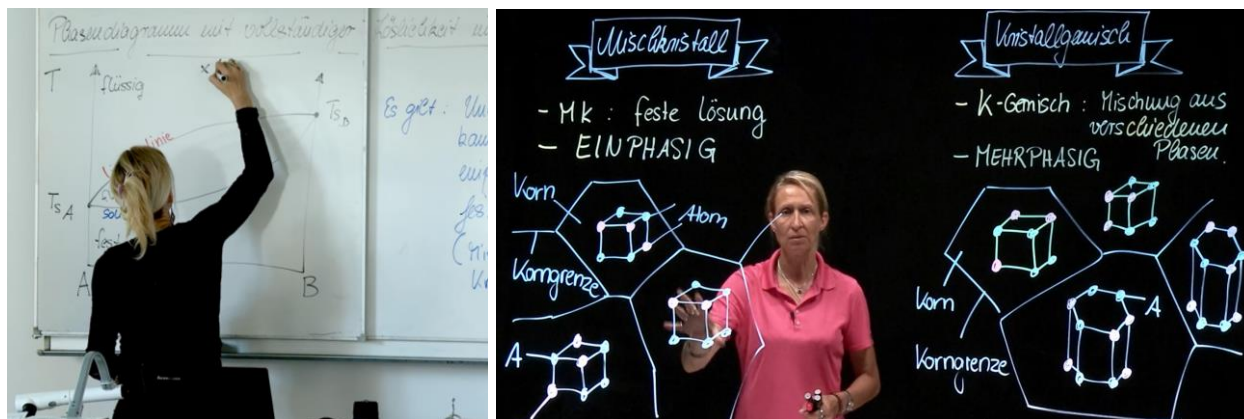 Phasendiagramm mit vollständiger
Löslichkeit
T
flüssig
Ts B
linie
Ts A
A
B
Es gilt:
Mischkristall
- Mk: feste Lösung
- EINPHASIG
Korn
Atom
Korngrenze
A
Kristallgemisch
- K-Gemisch: Mischung aus
verschiedenen
Phasen.
- MEHRPHASIG
Korn
A
Korngrenze